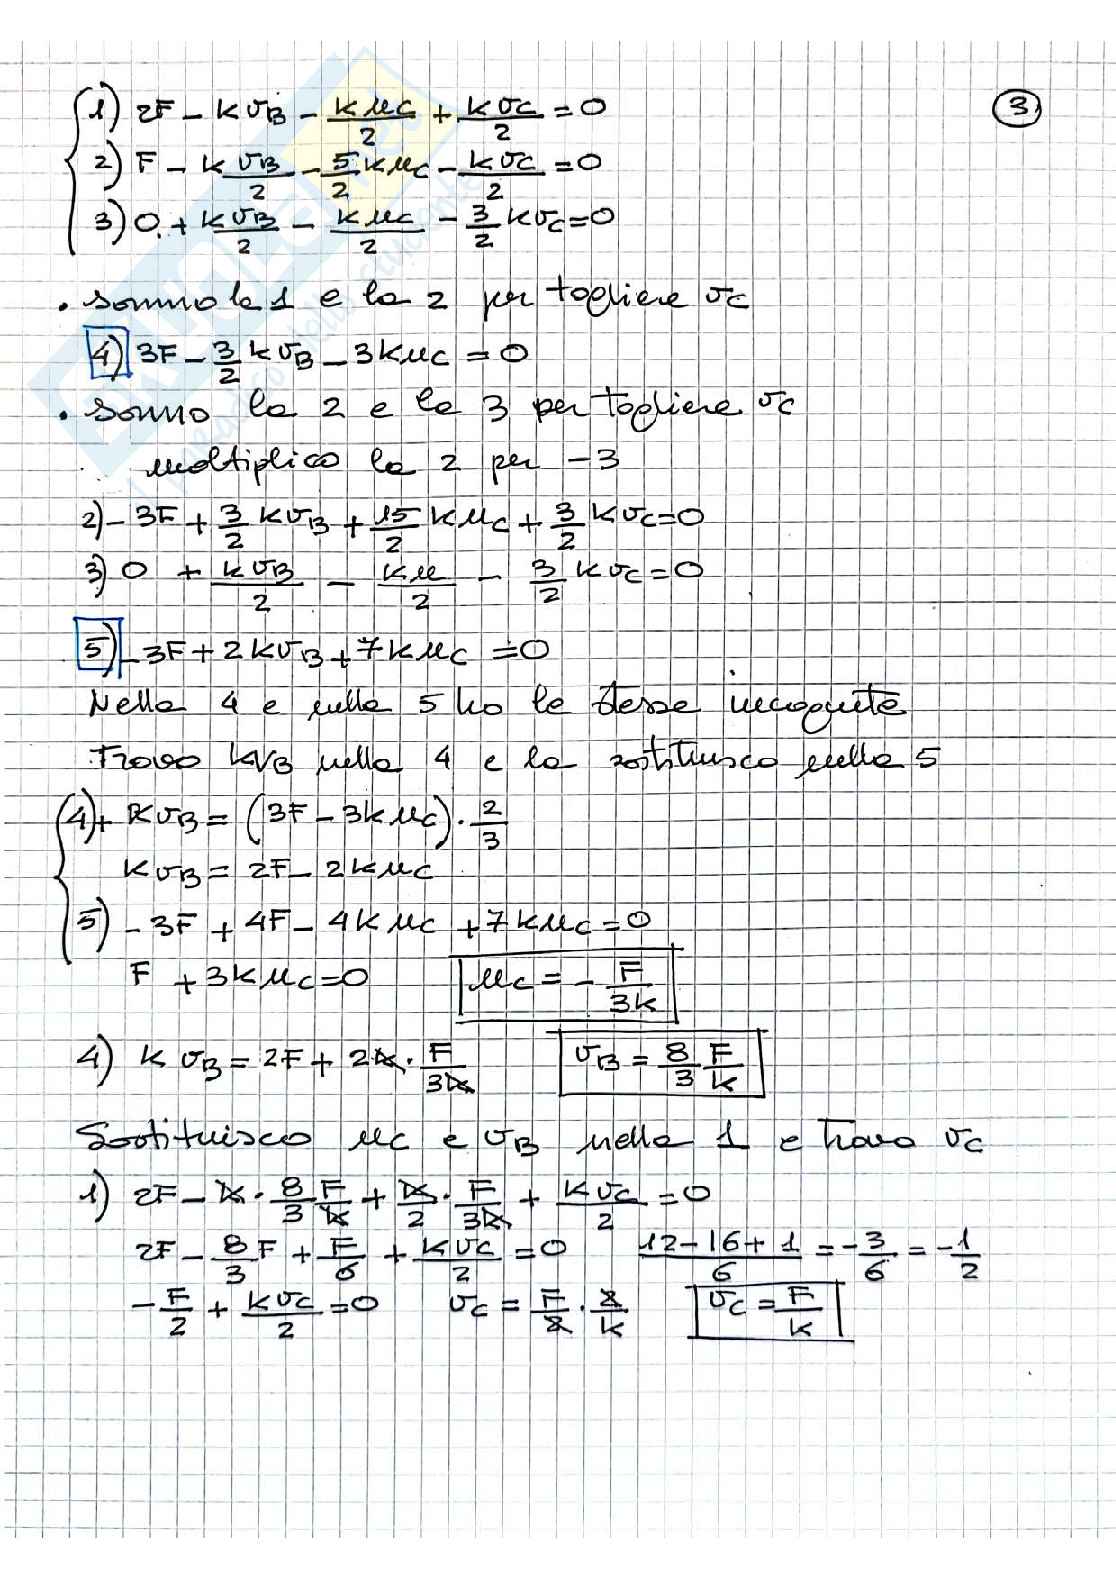 3
1) 2F - kv_B - ku_C/2 + kv_C/2 = 0
2) F - k v_B/2 - 5/2 ku_C - kv_C/2 = 0
3) 0 + kv_B/2 - ku_C/2 - 3/2 kv_C = 0
• sommo la 1 e la 2 per togliere v_C
4) 3F - 3/2 kv_B - 3ku_C = 0
• sommo la 2 e la 3 per togliere v_C
moltiplico la 2 per -3
2) - 3F + 3/2 kv_B + 15/2 ku_C + 3/2 kv_C = 0
3) 0 + kv_B/2 - ku/2 - 3/2 kv_C = 0
5) - 3F + 2kv_B + 7ku_C = 0
Nella 4 e nella 5 ho le stesse incognite
Trovo kv_B nella 4 e la sostituisco nella 5
4) + kv_B = (3F - 3ku_C) · 2/3
kv_B = 2F - 2ku_C
5) - 3F + 4F - 4ku_C + 7ku_C = 0
F + 3ku_C = 0 u_C = - F/3k
4) k v_B = 2F + 2k · F/3k v_B = 8/3 F/k
Sostituisco u_C e v_B nella 1 e trovo v_C
1) 2F - k · 8/3 F/k + k/2 · F/3k + kv_C/2 = 0
2F - 8/3 F + F/6 + kv_C/2 = 0 12-16+1/6 = -3/6 = -1/2
- F/2 + kv_C/2 = 0 v_C = F/2 · 2/k v_C = F/k